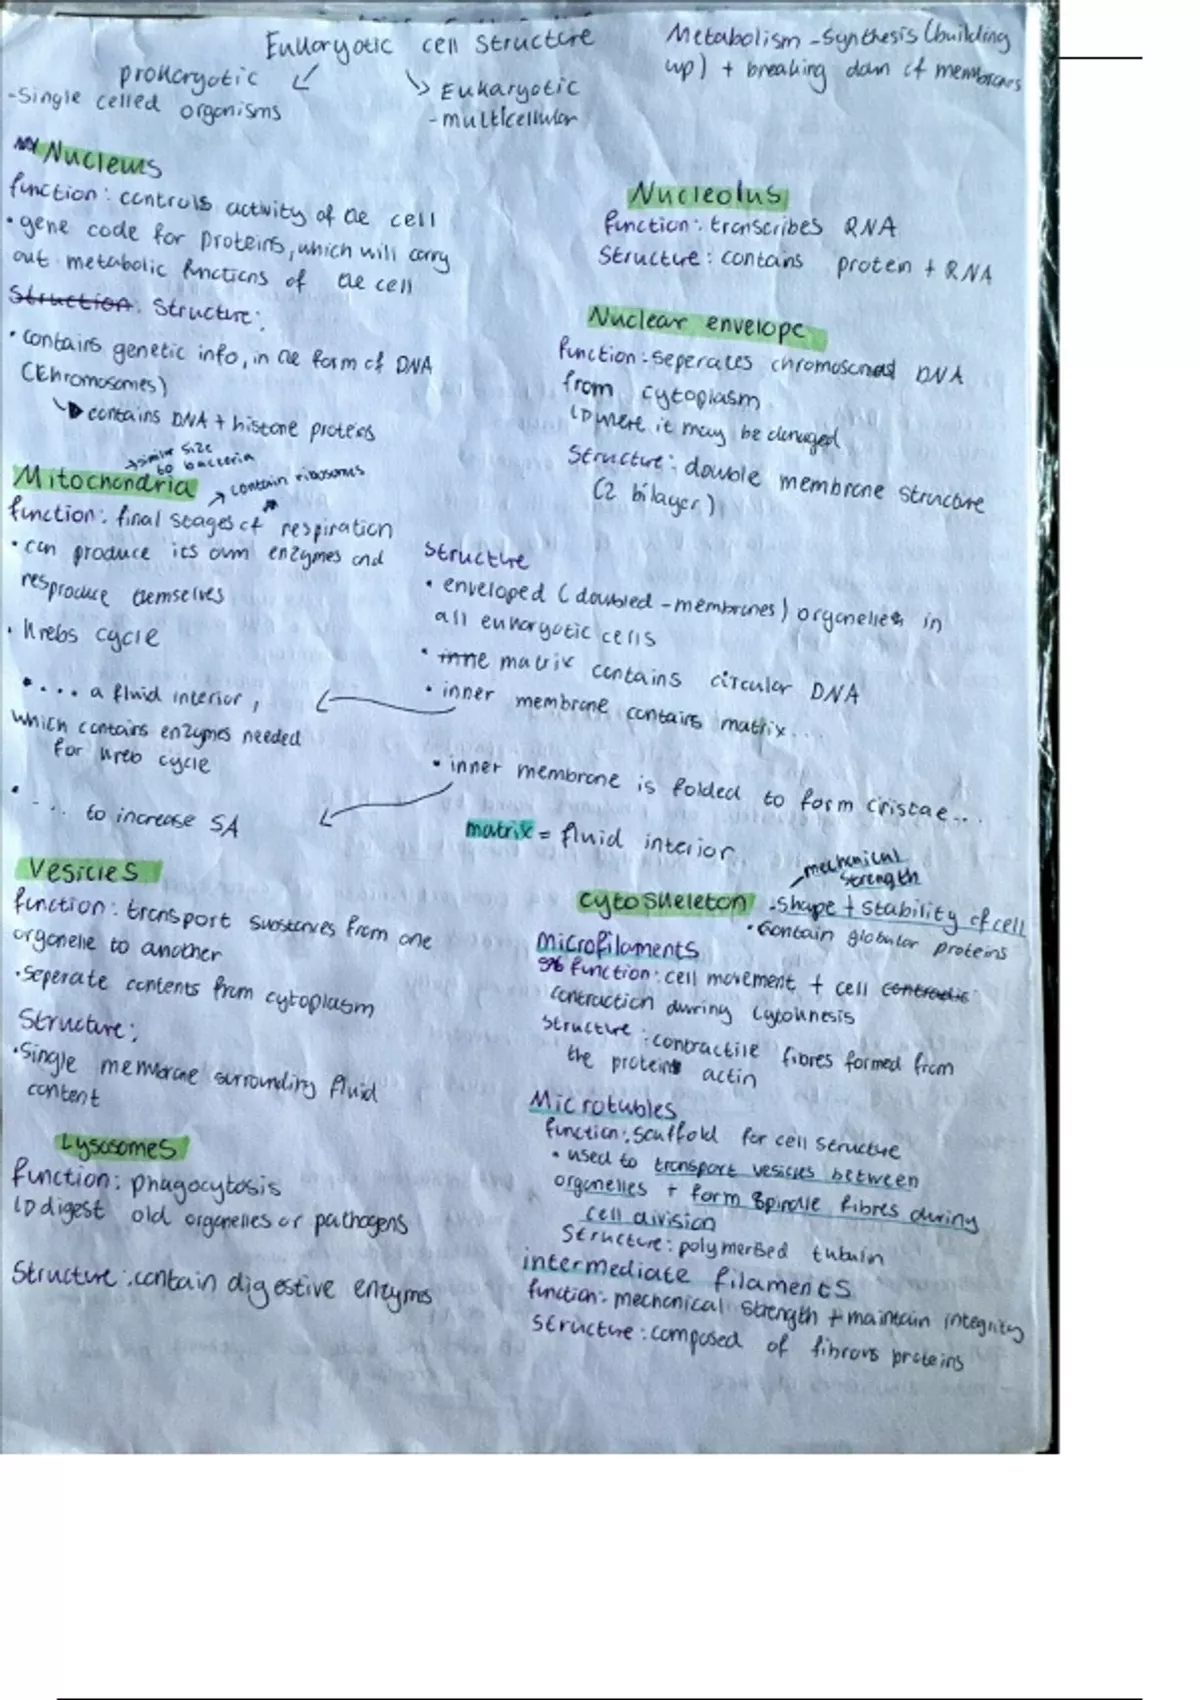 Eukaryotic cell structure
prokaryotic
-Single celled organisms
Eukaryotic
-multicellular
Metabolism - Synthesis (building
up) + breaking down of membranes
Nucleus
function: controls activity of the cell
• gene code for proteins, which will carry
out metabolic functions of the cell
Struction: Structure:
• contains genetic info, in the form of DNA
(Chromosomes)
contains DNA + histone proteins
Nucleolus
function: transcribes RNA
Structure: contains protein + RNA
Nuclear envelope
function: seperates chromosomal DNA
from cytoplasm
where it may be damaged
Structure: double membrane structure
(2 bilayer)
similar size
to bacteria
Mitochondria
contain ribosomes
function: final stages of respiration
• can produce its own enzymes and
resproduce themselves
• Krebs cycle
• .... a fluid interior,
which contains enzymes needed
for kreb cycle
• .... to increase SA
Structure
• enveloped (doubled-membranes) organelles in
all eukaryotic cells
• inne matrix contains circular DNA
• inner membrane contains matrix...
• inner membrane is folded to form cristae...
matrix = fluid interior
Vesicles
function: transport substances from one
organelle to another
• seperate contents from cytoplasm
Structure:
• Single membrane surrounding fluid
content
Lysosomes
function: phagocytosis
digest old organelles or pathogens
Structure: contain digestive enzymes
mechanical
strength
cytoskeleton - shape + stability of cell
• contain globular proteins
Microfilaments
function: cell movement + cell
contraction during cytokinesis
structure: contractile fibres formed from
the protein actin
Microtubles
function: scaffold for cell structure
• used to transport vesicles between
organelles + form spindle fibres during
cell division
Structure: polymerised tubulin
intermediate filaments
function: mechanical strength + maintain integrity
structure: composed of fibrous proteins